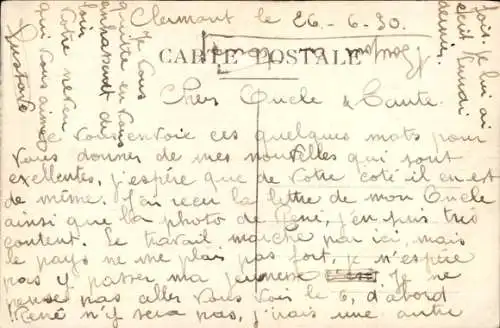 Clermont le 26-6-30.
CARTE POSTALE
Cher Oncle & Tante.
Je vous envoie ces quelques mots pour
vous donner de mes nouvelles qui sont
exellentes, j'espère que de votre coté il en est
de même. J'ai reçu la lettre de mon Oncle
ainsi que la photo de René, j'en suis très
content. Le travail marche par ici, mais
le pays ne me plais pas fort, je n'espère
pas y passer ma jeunesse Je ne
pense pas aller vous voir le 6, d'abord
René n'y sera pas, j'irais une autre
fois. Je lui ai
écrit Lundi
dernier.
Je vous
quitte en vous
embrassant de
loin
Votre neveu
qui vous aime
Gustave